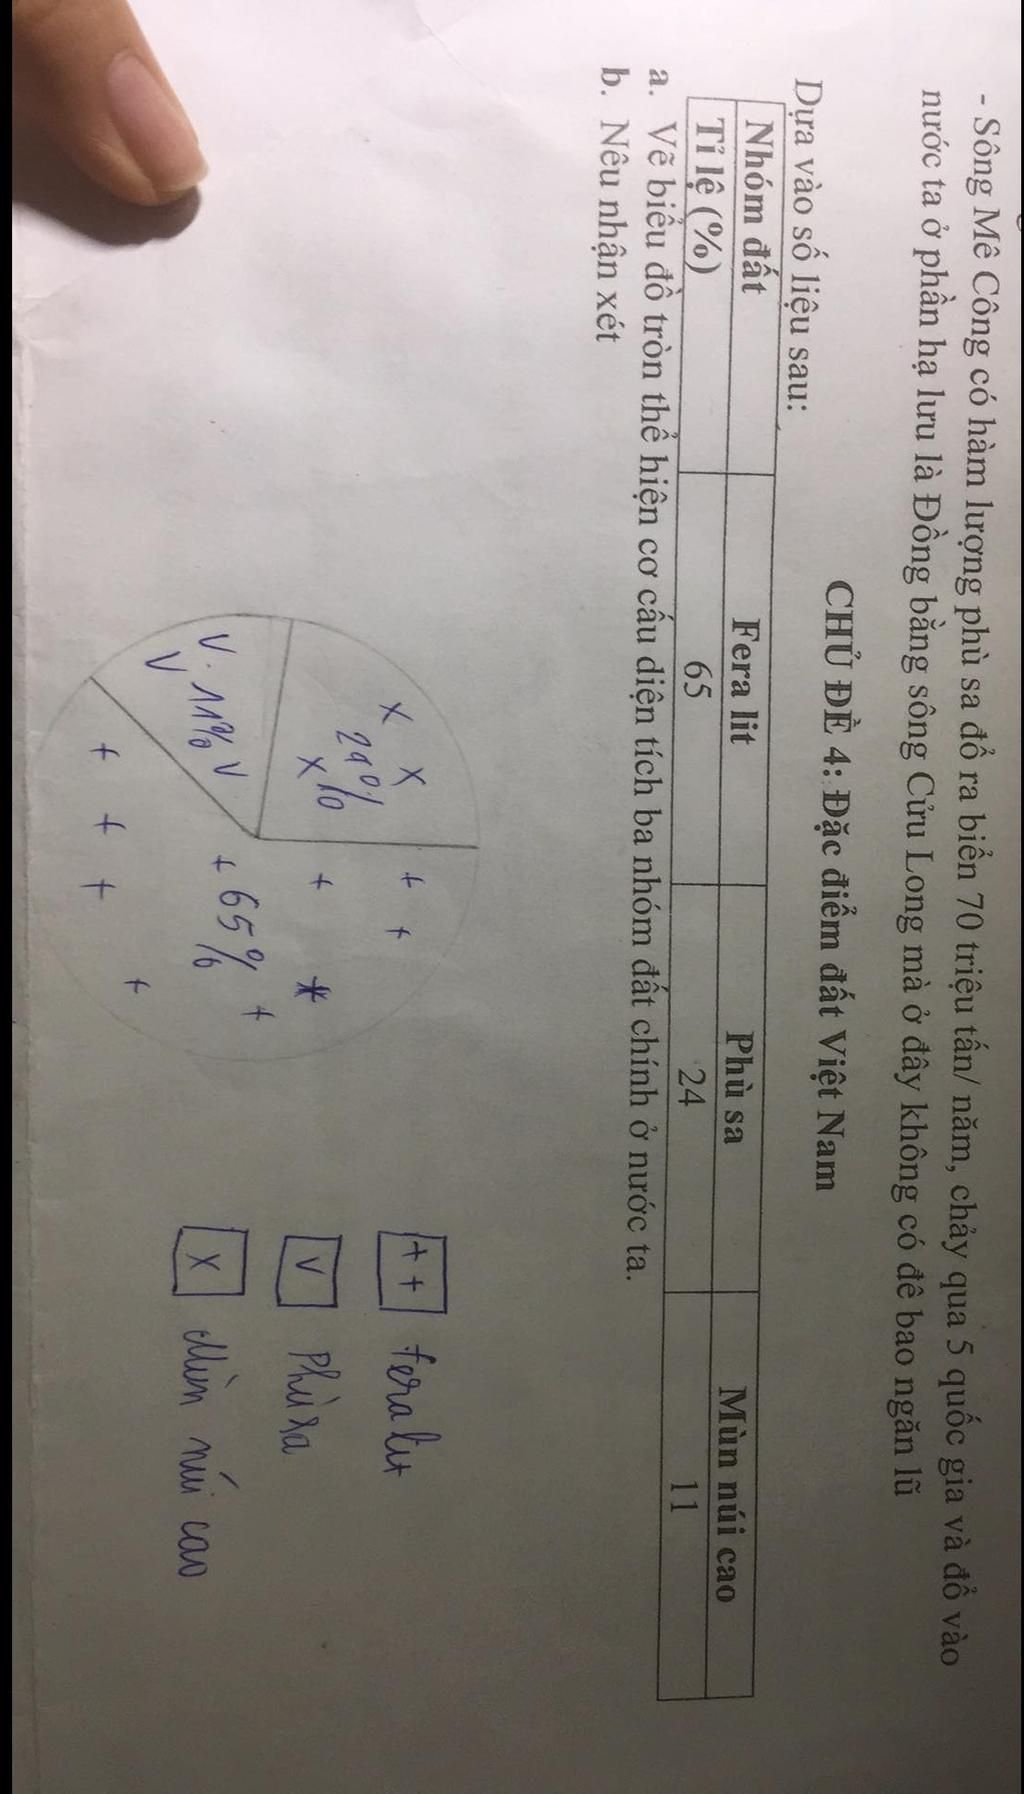 - Sông Mê Công có hàm lượng phù sa đổ ra biển 70 triệu tấn/ năm, chảy qua 5 quốc gia và đổ vào
nước ta ở phần hạ lưu là Đồng bằng sông Cửu Long mà ở đây không có đê bao ngăn lũ
CHỦ ĐỀ 4: Đặc điểm đất Việt Nam
Dựa vào số liệu sau:
Nhóm đất Fera lit Phù sa Mùn núi cao
Tỉ lệ (%) 65 24 11
a. Vẽ biểu đồ tròn thể hiện cơ cấu diện tích ba nhóm đất chính ở nước ta.
b. Nêu nhận xét
x x + +
24%
x + * 
+ 65% +
V. 11% V
V
+ + + +
++ feralit
V Phù sa
x Mùn núi cao